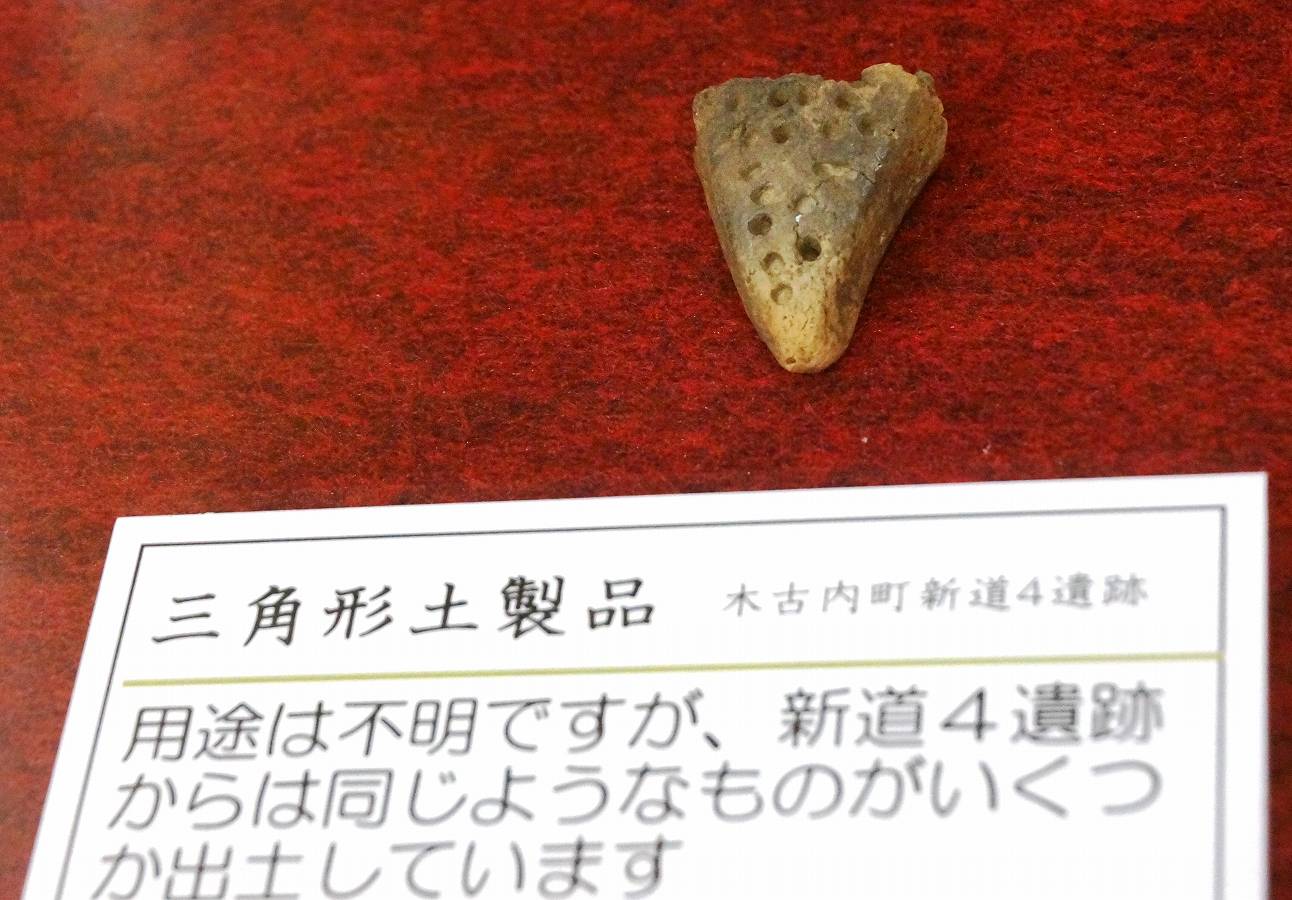 三角形土製品 木古内町新道4遺跡
用途は不明ですが、新道4遺跡
からは同じようなものがいくつ
か出土しています